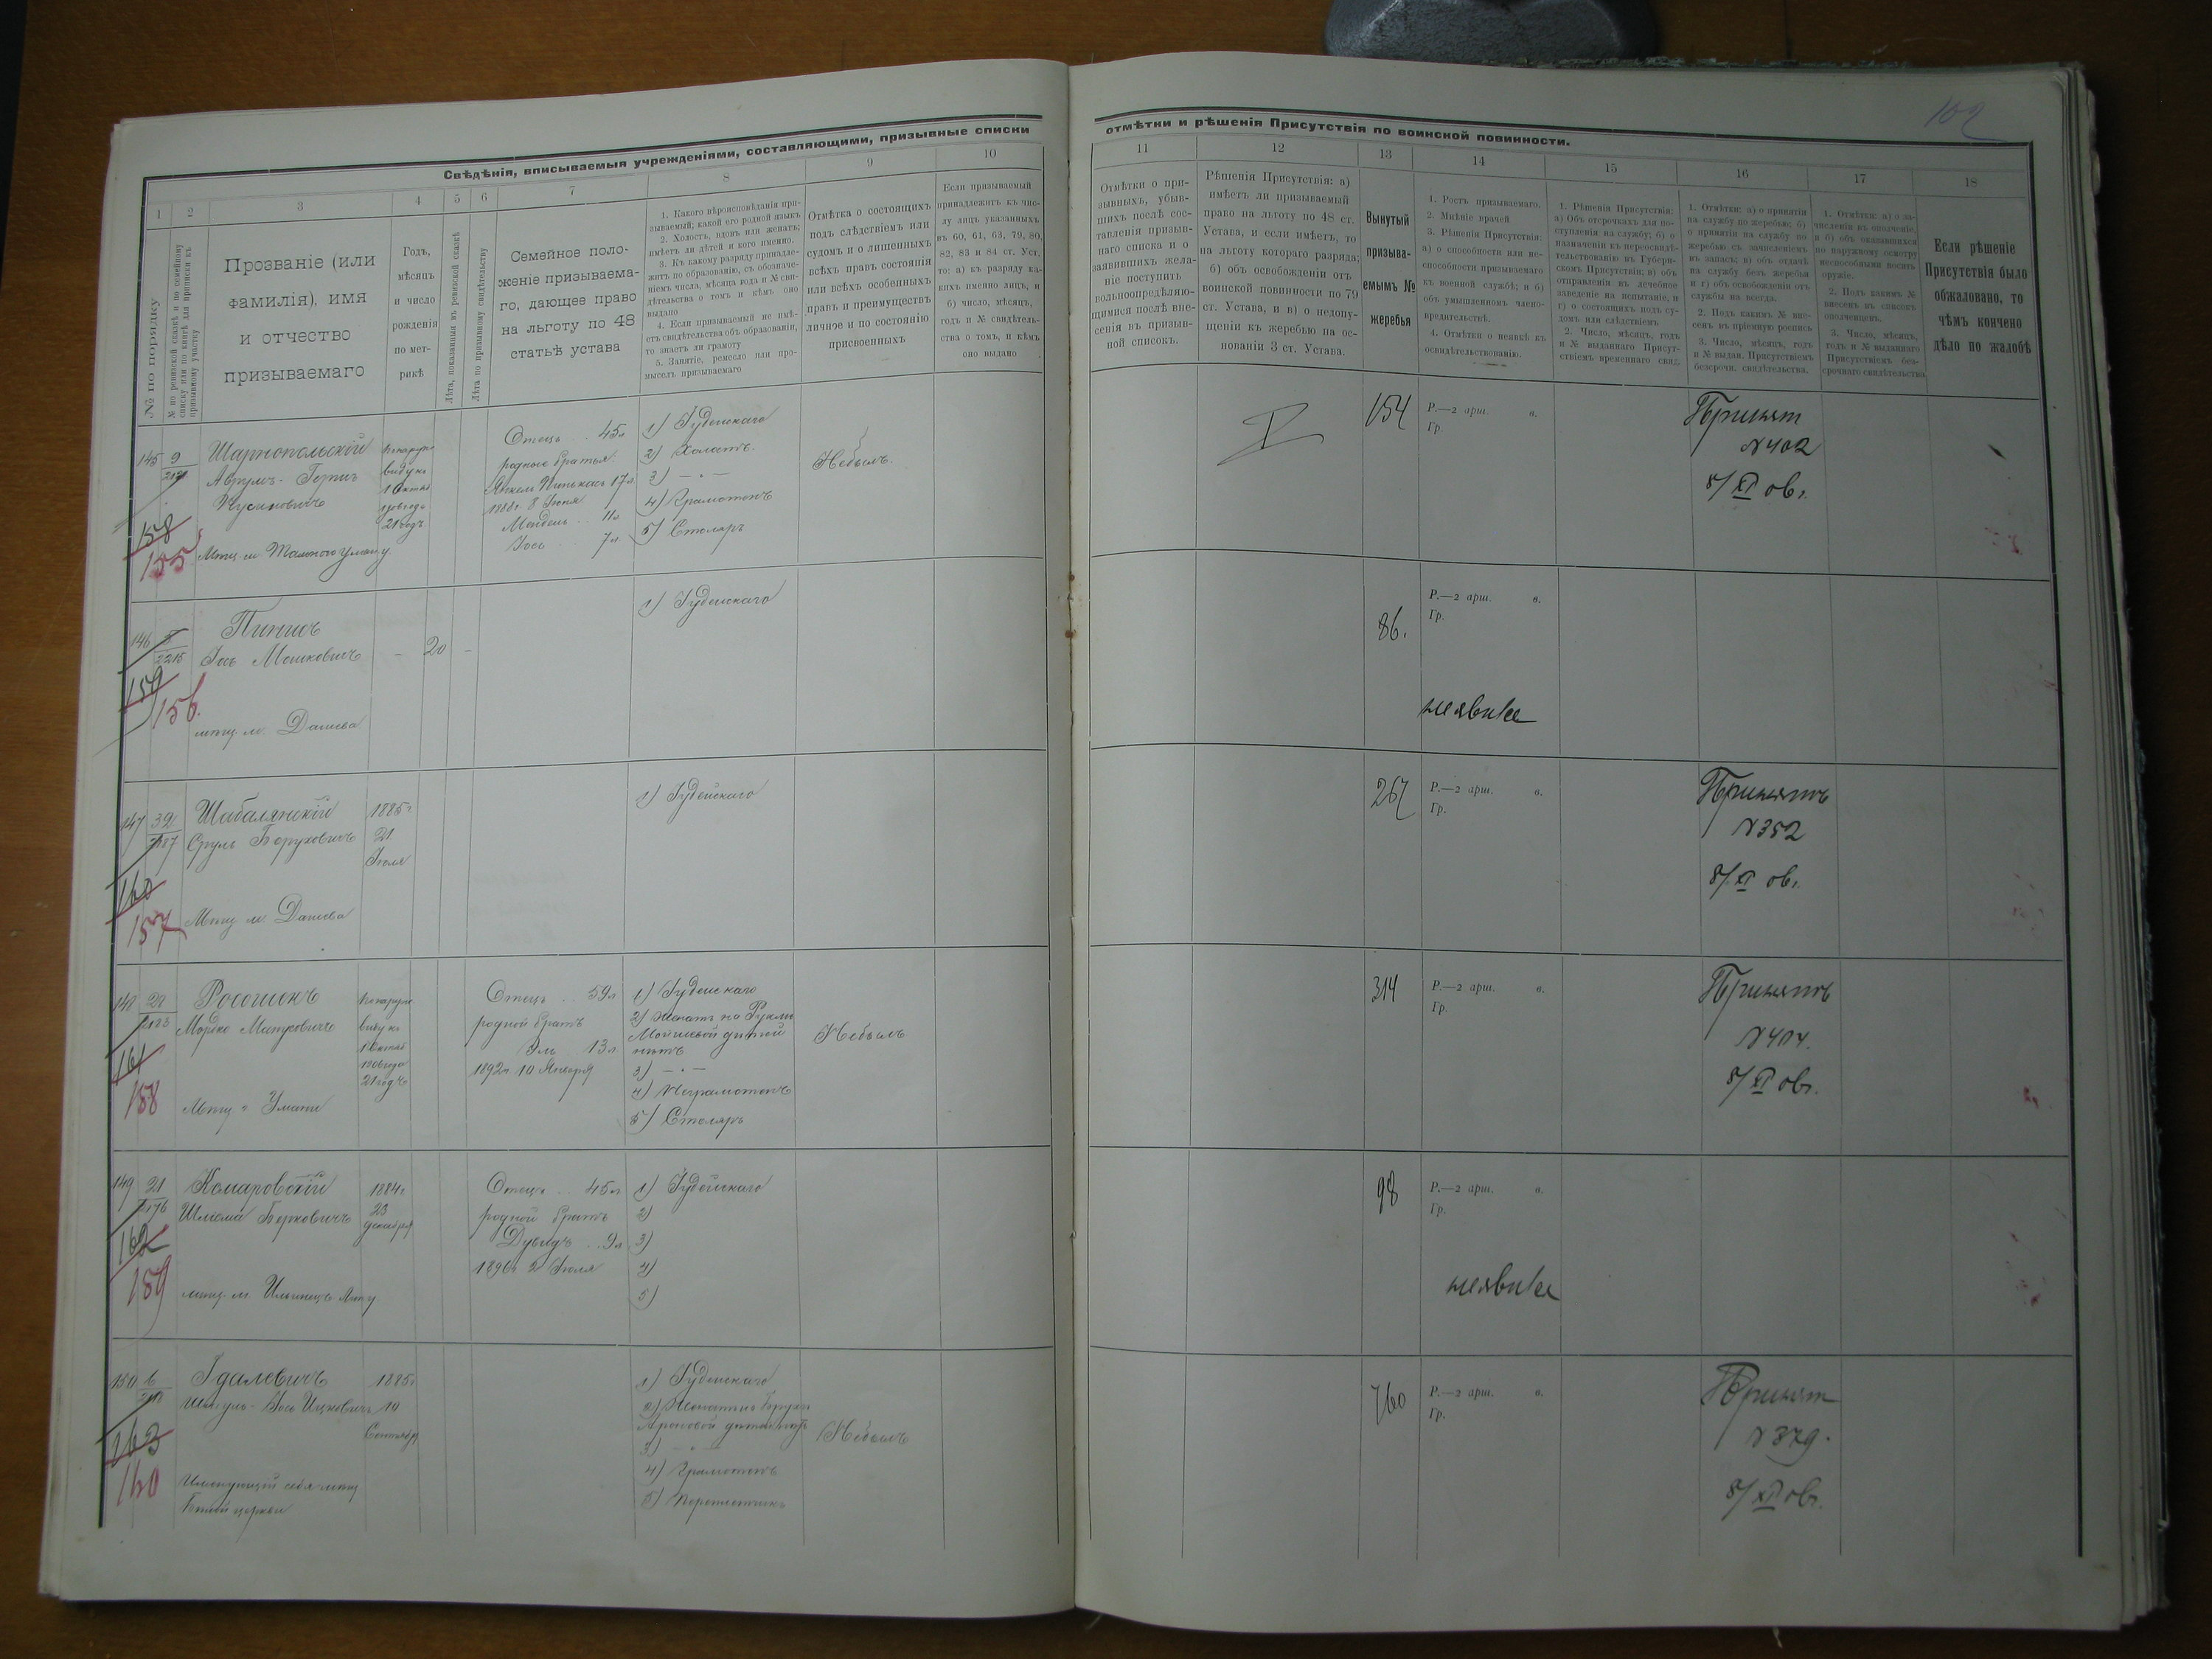 102
Свѣдѣнія, вписываемыя учрежденіями, составляющими, призывные списки
отмѣтки и рѣшенія Присутствія по воинской повинности.
1 2 3 4 5 6 7 8 9 10
11 12 13 14 15 16 17 18
№ по порядку
№ по ревизской сказкѣ и по семейному
списку или по книгѣ для приписки къ
призывному участку
Прозваніе (или
фамилія), имя
и отчество
призываемаго
Годъ,
мѣсяцъ
и число
рожденія
по мет-
рикѣ
Лѣта, показанныя въ ревизской сказкѣ
Лѣта по призывному свидѣтельству
Семейное поло-
женіе призываема-
го, дающее право
на льготу по 48
статьѣ устава
1. Какого вѣроисповѣданія при-
зываемый; какой его родной языкъ
2. Холостъ, вдовъ или женатъ;
имѣетъ ли дѣтей и кого именно.
3. Къ какому разряду принадле-
житъ по образованію, съ обозначе-
ніемъ числа, мѣсяца года и № сви-
дѣтельства о томъ и кѣмъ оно
выдано
4. Если призываемый не имѣ-
етъ свидѣтельства объ образованіи,
то знаетъ ли грамоту
5. Занятіе, ремесло или про-
мыселъ призываемаго
Отмѣтка о состоящихъ
подъ слѣдствіемъ или
судомъ и о лишенныхъ
всѣхъ правъ состоянія
или всѣхъ особенныхъ
правъ и преимуществъ
личное и по состоянію
присвоенныхъ
Если призываемый
принадлежитъ къ чис-
лу лицъ указанныхъ
въ 60, 61, 63, 79, 80,
82, 83 и 84 ст. Уст.
то: а) къ разряду ка-
кихъ именно лицъ, и
б) число, мѣсяцъ,
годъ и № свидѣтель-
ства о томъ, и кѣмъ
оно выдано
Отмѣтки о при-
зывныхъ, убыв-
шихъ послѣ сос-
тавленія призыв-
наго списка и о
заявившихъ жела-
ніе поступить
вольноопредѣляю-
щимися послѣ вне-
сенія въ призыв-
ной списокъ.
Рѣшенія Присутствія: а)
имѣетъ ли призываемый
право на льготу по 48 ст.
Устава, и если имѣетъ, то
на льготу котораго разряда;
б) объ освобожденіи отъ
воинской повинности по 79
ст. Устава, и в) о недопу-
щеніи къ жеребью на ос-
нованіи 3 ст. Устава.
Вынутый
призыва-
емымъ №
жеребья
1. Ростъ призываемаго.
2. Мнѣніе врачей
3. Рѣшенія Присутствія:
а) о способности или не-
способности призываемаго
къ военной службѣ; и б)
объ умышленномъ члено-
вредительствѣ.
4. Отмѣтки о неявкѣ къ
освидѣтельствованію.
1. Рѣшенія Присутствія:
а) Объ отсрочкахъ для по-
ступленія на службу; б) о
назначеніи къ переосвидѣ-
тельствованію въ Губерн-
скомъ Присутствіи; в) объ
отправленіи въ лечебное
заведеніе на испытаніе, и
г) о состоящихъ подъ су-
домъ или слѣдствіемъ
2. Число, мѣсяцъ, годъ
и № выданнаго Присут-
ствіемъ временнаго свид.
1. Отмѣтки: а) о принятіи
на службу по жеребью; б)
о принятіи на службу по
жеребью съ зачисленіемъ
въ запасъ; в) объ отдачѣ
на службу безъ жеребья
и г) объ освобожденіи отъ
службы на всегда.
2. Подъ какимъ № вне-
сенъ въ пріемную роспись
3. Число, мѣсяцъ, годъ
и № выдан. Присутствіемъ
безсрочн. свидѣтельства.
1. Отмѣтки: а) о за-
численіи въ ополченіе,
и б) объ оказавшихся
по наружному осмотру
неспособными носить
оружіе.
2. Подъ какимъ №
внесенъ въ списокъ
ополченцевъ.
3. Число, мѣсяцъ,
годъ и № выданнаго
Присутствіемъ без-
срочнаго свидѣтельства
Если рѣшеніе
Присутствія было
обжаловано, то
чѣмъ кончено
дѣло по жалобѣ
145 9
158
155
Аврумъ-
21 годъ
Отецъ .. 45 л
родные братья
17 л
1888г 8 Іюня
11 л
Іось .. 7 л
1) Іудейскаго
2) Холостъ
3) — " —
4) Грамотенъ
5) Столяръ
Небылъ
154
Р.—2 арш. в.
Гр.
Принят
№ 402
8/XI 06 г.
146
2215
159
156.
Пинисъ
Іось Мошковичъ
мѣщ. м. Дашева
— 20 —
1) Іудейскаго
86.
Р.—2 арш. в.
Гр.
неявился
147 32
160
157
Шабалянскій
Сруль Боруховичъ
Мѣщ м Дашева
1885 г
21
Іюля
1) Іудейскаго
267
Р.—2 арш. в.
Гр.
Принятъ
№ 352
8/XI 06 г.
148 28
2183
161
158
Мордко
Мѣщ г Умани
21 годъ
Отецъ .. 59 л
родной братъ
13 л
1892 г 10 Января
1) Іудейскаго
3) — " —
4) Неграмотенъ
5) Столяръ
Небылъ
314
Р.—2 арш. в.
Гр.
Принятъ
№ 404.
8/XI 06 г.
149 21
2176
162
159
Комаровскій
Шлёма Берковичъ
1884 г
23
декабря
Отецъ .. 45 л
родной братъ
Дувидъ .. 9 л
1896 г 2 Іюля
1) Іудейскаго
2)
3)
4)
5)
98
Р.—2 арш. в.
Гр.
неявился
150 6
163
160
Гдалевичъ
Ицковичъ
Именующій себя мѣщ
Бѣлой церкви
1885 г
10
Сентября
1) Іудейскаго
3) — " —
4) Грамотенъ
5) Переплетчикъ
Небылъ
760
Р.—2 арш. в.
Гр.
Принят
№ 379.
8/XI 06 г.